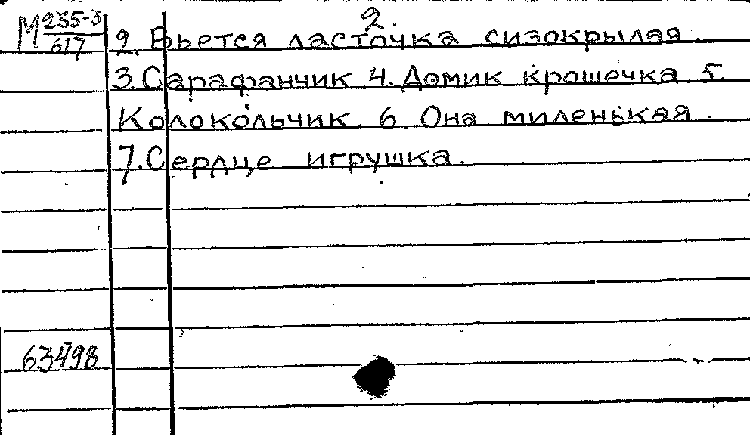 2.
М 235-3
617
2. Вьется ласточка сизокрылая.
3. Сарафанчик 4. Домик крошечка 5.
Колокольчик 6. Она миленькая.
7. Сердце игрушка.
63498